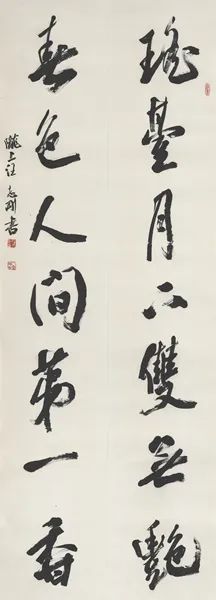 瑤臺月下雙無艷
春色人間第一香
隴上汪志刚書